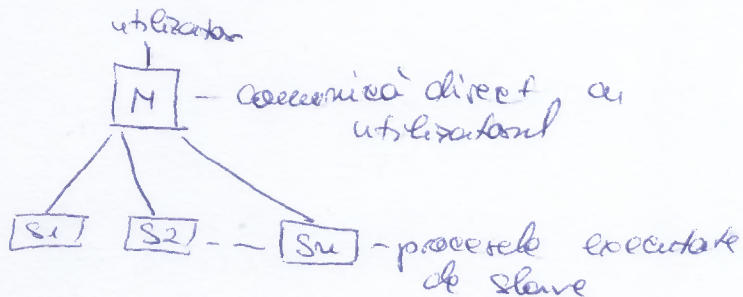 utilizator
M - comunică direct cu
utilizatorul
S1 S2 - - Sn - procesele executate
de slave